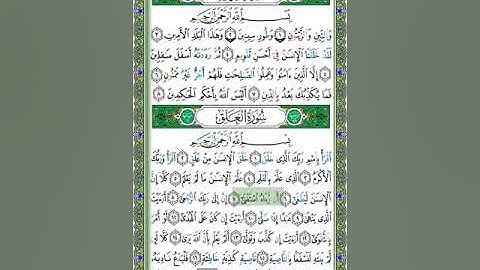 بِسْمِ ٱللَّهِ ٱلرَّحْمَٰنِ ٱلرَّحِيمِ
وَٱلتِّينِ وَٱلزَّيْتُونِ ١ وَطُورِ سِينِينَ ٢ وَهَٰذَا ٱلْبَلَدِ ٱلْأَمِينِ ٣
لَقَدْ خَلَقْنَا ٱلْإِنسَٰنَ فِىٓ أَحْسَنِ تَقْوِيمٍ ٤ ثُمَّ رَدَدْنَٰهُ أَسْفَلَ سَٰفِلِينَ
٥ إِلَّا ٱلَّذِينَ ءَامَنُوا۟ وَعَمِلُوا۟ ٱلصَّٰلِحَٰتِ فَلَهُمْ أَجْرٌ غَيْرُ مَمْنُونٍ ٦
فَمَا يُكَذِّبُكَ بَعْدُ بِٱلدِّينِ ٧ أَلَيْسَ ٱللَّهُ بِأَحْكَمِ ٱلْحَٰكِمِينَ ٨
سُورَةُ العَلَقِ
بِسْمِ ٱللَّهِ ٱلرَّحْمَٰنِ ٱلرَّحِيمِ
ٱقْرَأْ بِٱسْمِ رَبِّكَ ٱلَّذِى خَلَقَ ١ خَلَقَ ٱلْإِنسَٰنَ مِنْ عَلَقٍ ٢ ٱقْرَأْ وَرَبُّكَ
ٱلْأَكْرَمُ ٣ ٱلَّذِى عَلَّمَ بِٱلْقَلَمِ ٤ عَلَّمَ ٱلْإِنسَٰنَ مَا لَمْ يَعْلَمْ ٥ كَلَّآ إِنَّ
ٱلْإِنسَٰنَ لَيَطْغَىٰٓ ٦ أَن رَّءَاهُ ٱسْتَغْنَىٰٓ ٧ إِنَّ إِلَىٰ رَبِّكَ ٱلرُّجْعَىٰٓ ٨ أَرَءَيْتَ
ٱلَّذِى يَنْهَىٰ ٩ عَبْدًا إِذَا صَلَّىٰٓ ١٠ أَرَءَيْتَ إِن كَانَ عَلَى ٱلْهُدَىٰٓ ١١ أَوْ أَمَرَ
بِٱلتَّقْوَىٰٓ ١٢ أَرَءَيْتَ إِن كَذَّبَ وَتَوَلَّىٰٓ ١٣ أَلَمْ يَعْلَم بِأَنَّ ٱللَّهَ يَرَىٰ ١٤ كَلَّا لَئِن لَّمْ
يَنتَهِ لَنَسْفَعًۢا بِٱلنَّاصِيَةِ ١٥ نَاصِيَةٍ كَٰذِبَةٍ خَاطِئَةٍ ١٦ فَلْيَدْعُ نَادِيَهُۥ